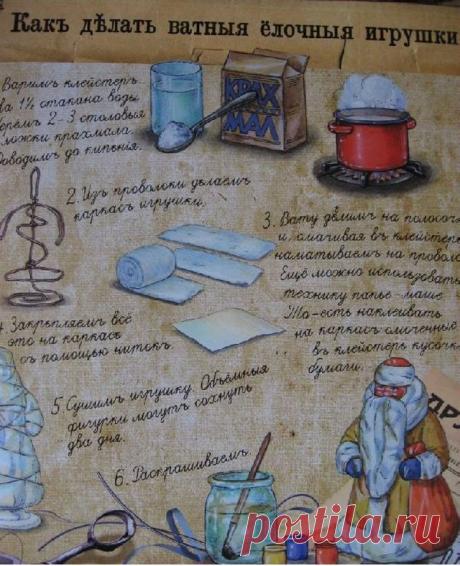 Какъ дѣлать ватныя ёлочныя игрушки
Варимъ клейстеръ.
На 1½ стакана воды
берёмъ 2-3 столовыя
ложки крахмала.
Доводимъ до кипѣнiя.
КРАХ
МАЛ
2. Изъ проволоки дѣлаемъ
каркасъ игрушки.
3. Вату дѣлимъ на полосочк
и, смачивая въ клейстере
наматываемъ на проволо
Ещё можно использовать
технику папье-маше
То-есть наклеивать
на каркасъ смоченные
въ клейстерѣ кусочк
бумаги.
4. Закрѣпляемъ всё
это на каркасъ
съ помощью нитокъ.
5. Сушимъ игрушку. Объёмныя
фигурки могутъ сохнуть
два дня.
6. Раскрашиваемъ.
ДРУ
postila.ru